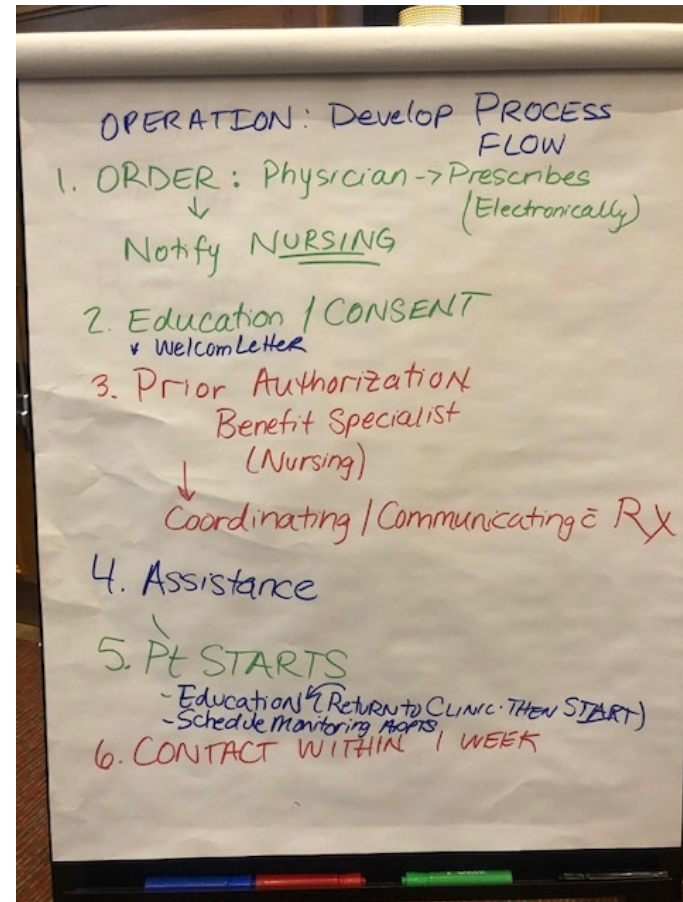 OPERATION: Develop PROCESS
FLOW
1. ORDER: Physician -> Prescribes
↓ (Electronically)
Notify NURSING
2. Education / CONSENT
* WelcomLetteR
3. Prior Authorization
Benefit Specialist
(Nursing)
↓
Coordinating / Communicating c̄ Rx
4. Assistance
5. Pt STARTS
- Education (RetuRN to CLINIC. THEN START)
- Schedule Monitoring APPTS
6. CONTACT WITHIN 1 WEEK